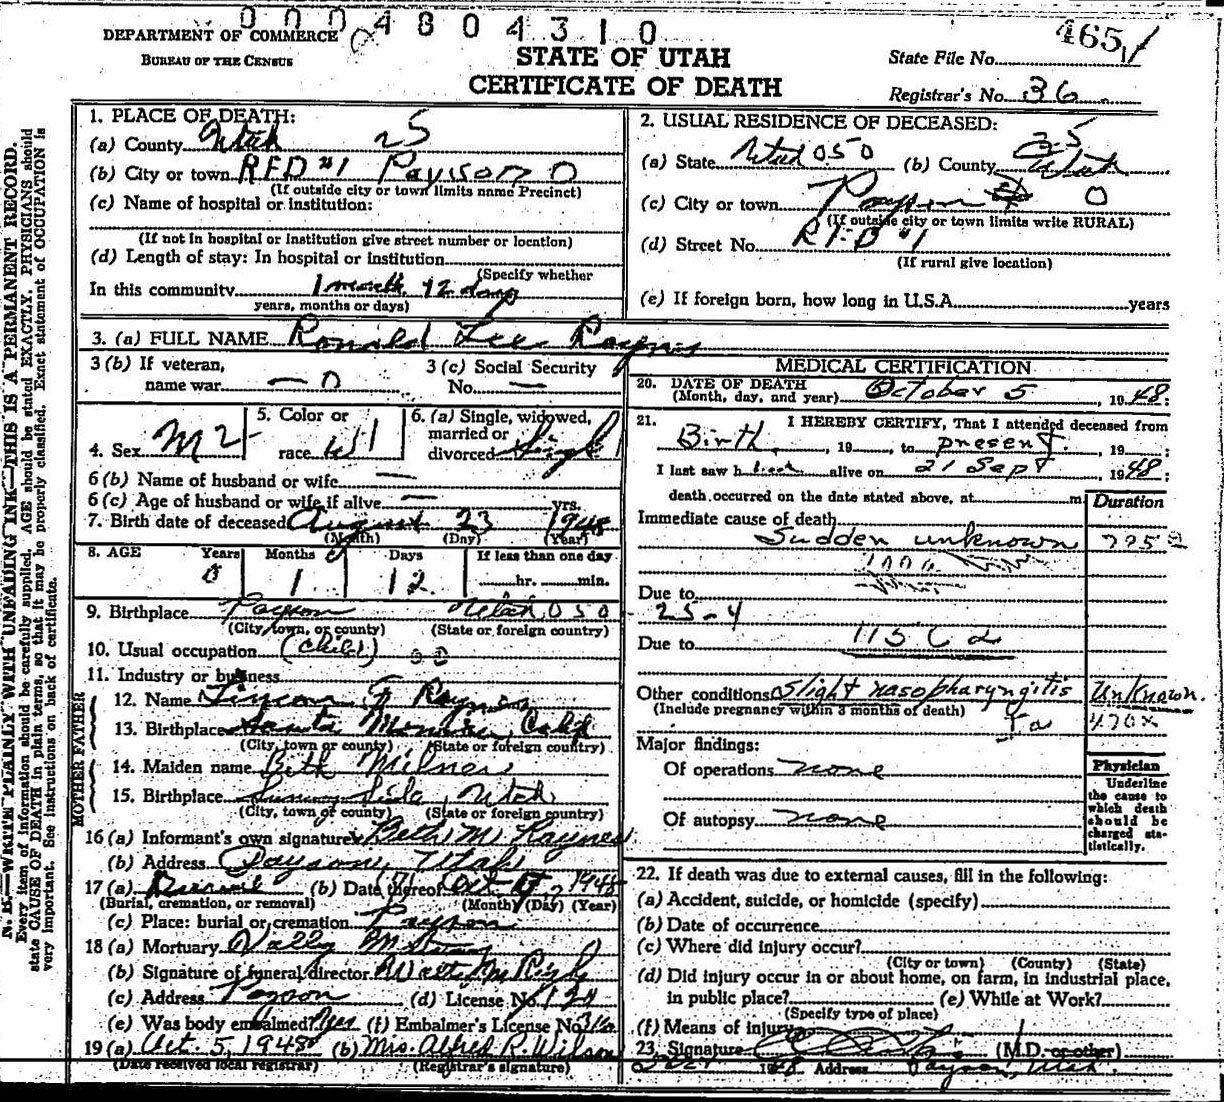 0004804310
DEPARTMENT OF COMMERCE
BUREAU OF THE CENSUS
STATE OF UTAH
CERTIFICATE OF DEATH
465
State File No.
Registrar's No. 36
N. B.—WRITE PLAINLY WITH UNFADING INK—THIS IS A PERMANENT RECORD.
Every item of information should be carefully supplied. AGE should be stated EXACTLY. PHYSICIANS should
state CAUSE OF DEATH in plain terms, so that it may be properly classified. Exact statement of OCCUPATION is
very important. See instructions on back of certificate.
1. PLACE OF DEATH:
(a) County Utah 25
(b) City or town RFD #1 Payson 0
(If outside city or town limits name Precinct)
(c) Name of hospital or institution:
(If not in hospital or institution give street number or location)
(d) Length of stay: In hospital or institution
(Specify whether
In this community 1 month 12 days
years, months or days)
2. USUAL RESIDENCE OF DECEASED:
(a) State Utah 050 (b) County 25 Utah
(c) City or town Payson 0
(If outside city or town limits write RURAL)
(d) Street No. RFD #1
(If rural give location)
(e) If foreign born, how long in U.S.A. years
3. (a) FULL NAME Ronald Lee Raynes
3 (b) If veteran, name war — 0
3 (c) Social Security No. —
4. Sex M 2
5. Color or race W 1
6. (a) Single, widowed, married or divorced Single 1
6 (b) Name of husband or wife —
6 (c) Age of husband or wife if alive — yrs.
7. Birth date of deceased August 23 1948
(Month) (Day) (Year)
8. AGE Years Months Days If less than one day
0 1 12 hr. min.
9. Birthplace Payson Utah 050
(City, town, or county) (State or foreign country)
10. Usual occupation (child)
11. Industry or business
FATHER
12. Name F Raynes
13. Birthplace Santa Monica, Calif
(City, town or county) (State or foreign country)
MOTHER
14. Maiden name Beth Milner
15. Birthplace Sunnyside, Utah
(City, town or county) (State or foreign country)
16 (a) Informant's own signature Beth M. Raynes
(b) Address Payson, Utah
17 (a) Burial (b) Date thereof Oct 1948
(Burial, cremation, or removal) (Month) (Day) (Year)
(c) Place: burial or cremation Payson
18 (a) Mortuary Valley Mortuary
(b) Signature of funeral director
(c) Address Payson (d) License No. 124
(e) Was body embalmed? Yes (f) Embalmer's License No. 316
19 (a) Oct. 5, 1948 (b) Mrs. Alfred R. Wilson
(Date received local registrar) (Registrar's signature)
MEDICAL CERTIFICATION
20. DATE OF DEATH
(Month, day, and year) October 5, 1948;
21. I HEREBY CERTIFY, That I attended deceased from
Birth, 19 , to present, 19 ;
I last saw h alive on 21 Sept, 1948;
death occurred on the date stated above, at m
Duration
Immediate cause of death
Sudden unknown 795
Due to
25-4
Due to
115
Other conditions slight nasopharyngitis Unknown
(Include pregnancy within 3 months of death)
470x
Major findings:
Of operations none
Of autopsy none
Physician
Underline
the cause to
which death
should be
charged sta-
tistically.
22. If death was due to external causes, fill in the following:
(a) Accident, suicide, or homicide (specify)
(b) Date of occurrence
(c) Where did injury occur?
(City or town) (County) (State)
(d) Did injury occur in or about home, on farm, in industrial place,
in public place? (e) While at Work?
(Specify type of place)
(f) Means of injury
23. Signature (M.D. or other)
Address Payson, Utah